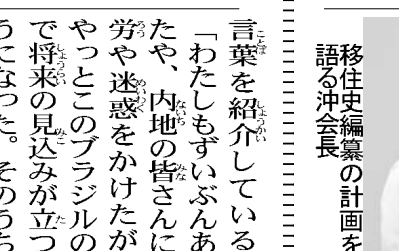 移住史編纂の計画を
語る沖会長
言葉を紹介している
「わたしもずいぶんあ
たや、内地の皆さんに
労や迷惑をかけたが
やっとこのブラジルの
で将来の見込みが立つ
うになった。そのうち